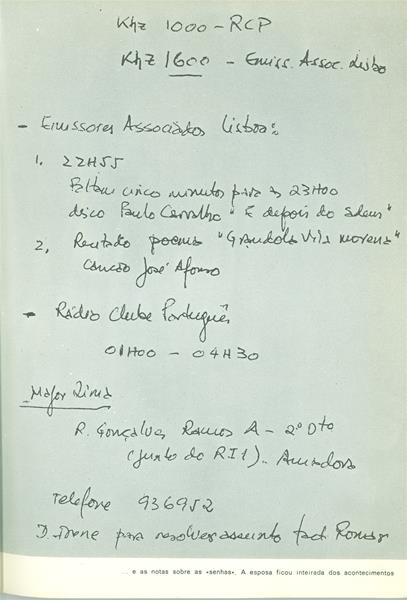 Khz 1000 - RCP
Khz 1600 - Emiss. Assoc. Lisboa
- Emissores Associados Lisboa:
1. 22H55
Faltam cinco minutos para as 23H00
disco Paulo Carvalho "E depois do adeus"
2. Recitado poema "Grandola Vila morena"
Canção José Afonso
- Rádio Clube Português
01H00 - 04H30
Major
R. Gonçalves Ramos A - 2º Dto
(junto do RI1) - Amadora
Telefone 936952
para resolver assunto
... e as notas sobre as «senhas». A esposa ficou inteirada dos acontecimentos